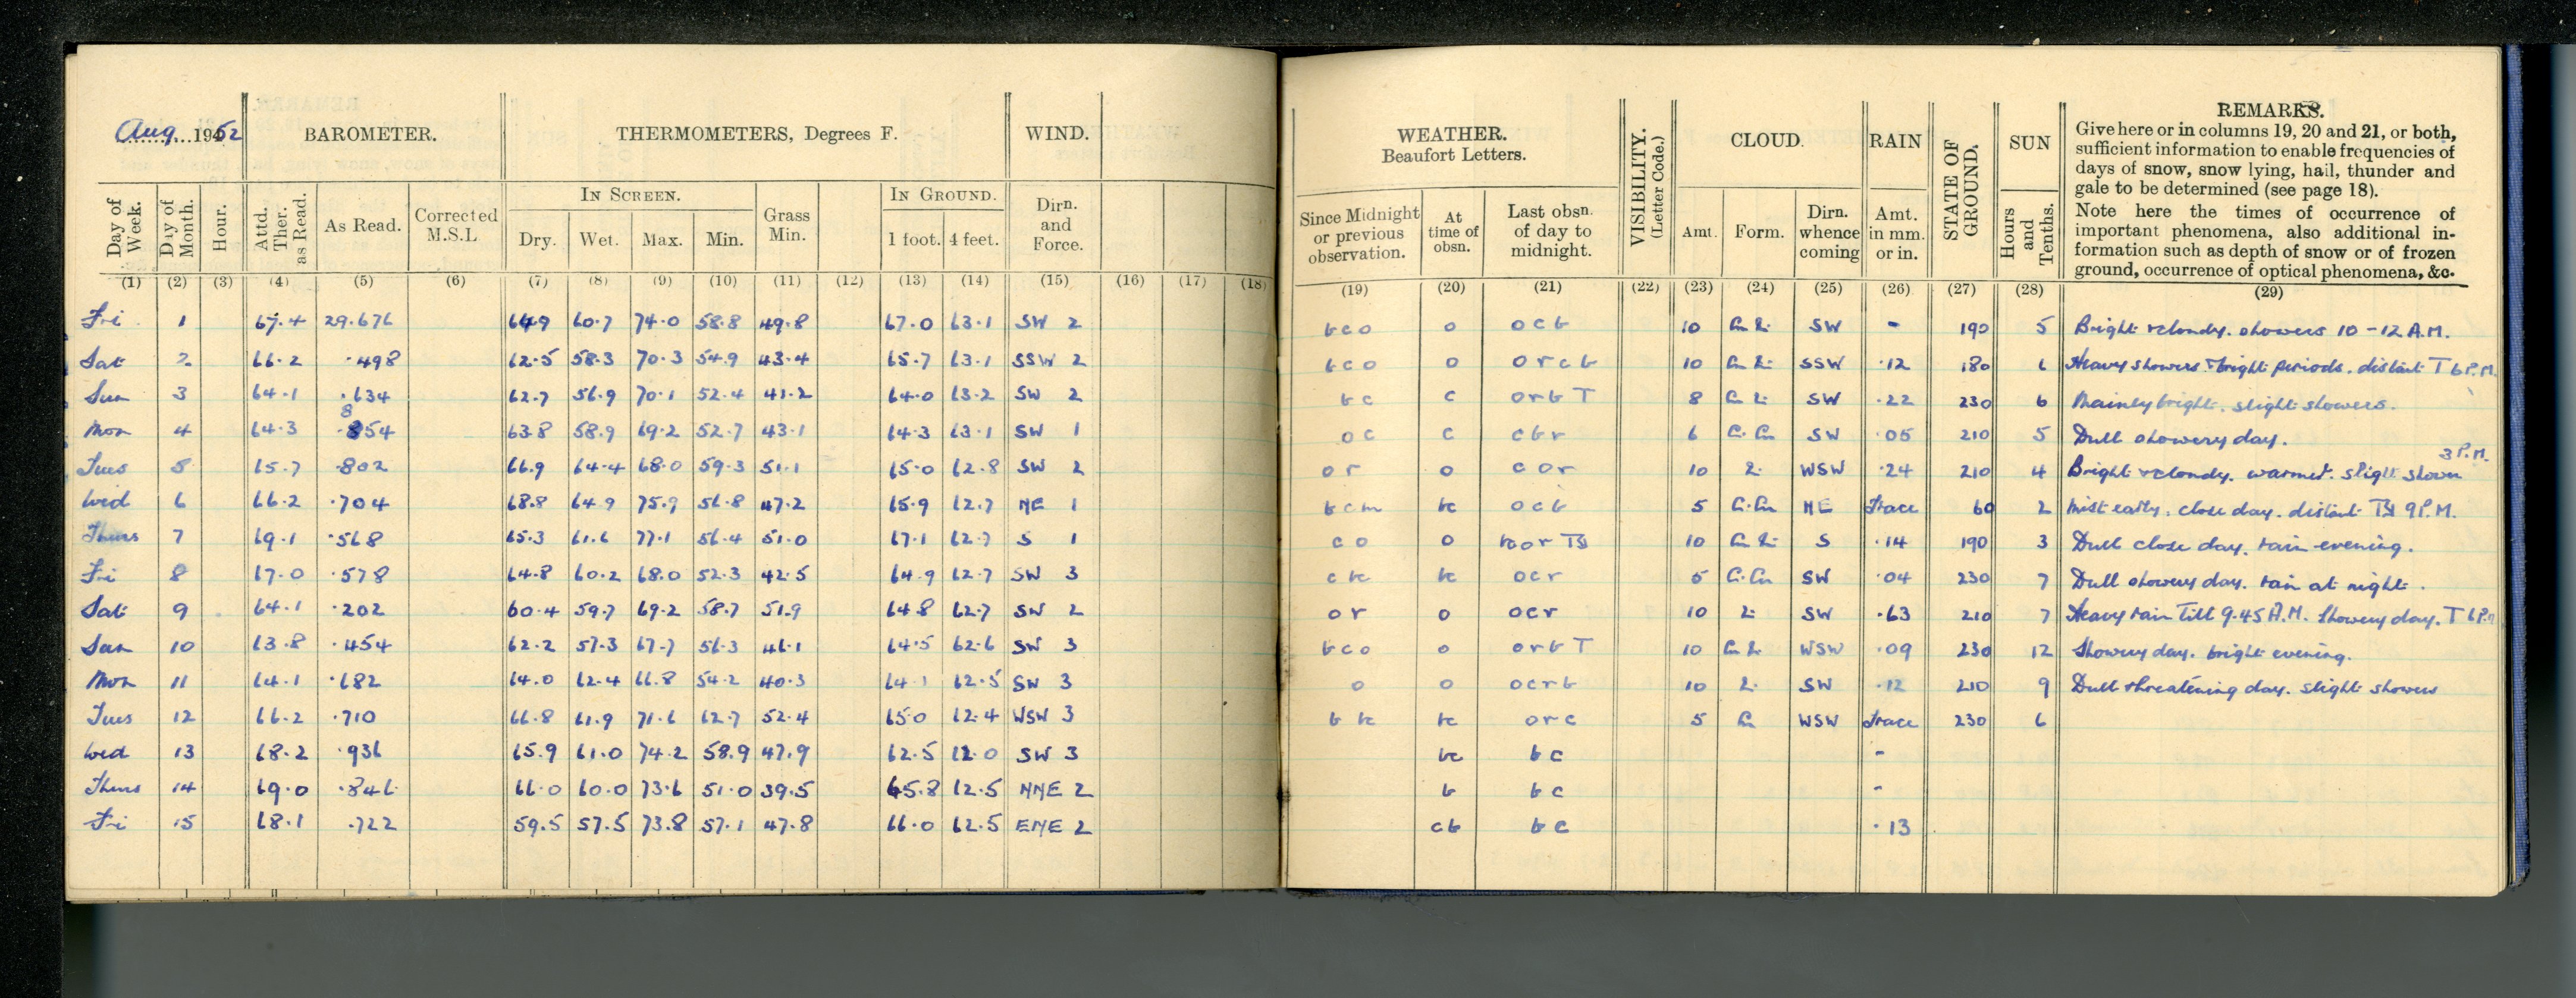 Aug. 1952
BAROMETER.
THERMOMETERS, Degrees F.
WIND.
Day of Week.
Day of Month.
Hour.
Attd. Ther. as Read.
As Read.
Corrected M.S.L
IN SCREEN.
Dry. Wet. Max. Min.
Grass Min.
IN GROUND.
1 foot. 4 feet.
Dirn. and Force.
(1) (2) (3) (4) (5) (6) (7) (8) (9) (10) (11) (12) (13) (14) (15) (16) (17) (18)
Fri 1 67.4 29.676 64.9 60.7 74.0 58.8 49.8 67.0 63.1 SW 2
Sat 2 66.2 .498 62.5 58.3 70.3 54.9 43.4 65.7 63.1 SSW 2
Sun 3 64.1 .634 62.7 56.9 70.1 52.4 41.2 64.0 63.2 SW 2
Mon 4 64.3 .854 63.8 58.9 69.2 52.7 43.1 64.3 63.1 SW 1
Tues 5 65.7 .802 66.9 64.4 68.0 59.3 51.1 65.0 62.8 SW 2
Wed 6 66.2 .704 68.8 64.9 75.9 56.8 47.2 65.9 62.7 NE 1
Thurs 7 69.1 .568 65.3 61.6 77.1 56.4 51.0 67.1 62.7 S 1
Fri 8 67.0 .578 64.8 60.2 68.0 52.3 42.5 64.9 62.7 SW 3
Sat 9 64.1 .202 60.4 59.7 69.2 58.7 51.9 64.8 62.7 SW 2
Sun 10 63.8 .454 62.2 57.3 67.7 56.3 46.1 64.5 62.6 SW 3
Mon 11 64.1 .682 64.0 62.4 66.8 54.2 40.3 64.1 62.5 SW 3
Tues 12 66.2 .710 66.8 61.9 71.6 62.7 52.4 65.0 62.4 WSW 3
Wed 13 68.2 .936 65.9 61.0 74.2 58.9 47.9 62.5 62.0 SW 3
Thurs 14 69.0 .846 66.0 60.0 73.6 51.0 39.5 65.8 62.5 NNE 2
Fri 15 68.1 .722 59.5 57.5 73.8 57.1 47.8 66.0 62.5 ENE 2
WEATHER.
Beaufort Letters.
Since Midnight or previous observation.
At time of obsn.
Last obsn. of day to midnight.
VISIBILITY. (Letter Code.)
CLOUD.
Amt. Form.
Dirn. whence coming
RAIN
Amt. in mm. or in.
STATE OF GROUND.
SUN
Hours and Tenths.
REMARKS.
Give here or in columns 19, 20 and 21, or both,
sufficient information to enable frequencies of
days of snow, snow lying, hail, thunder and
gale to be determined (see page 18).
Note here the times of occurrence of
important phenomena, also additional in-
formation such as depth of snow or of frozen
ground, occurrence of optical phenomena, &c.
(19) (20) (21) (22) (23) (24) (25) (26) (27) (28) (29)
bco o ocb 10 SW - 190 5 Bright & cloudy. showers 10-12 A.M.
bco o orcb 10 SSW .12 180 6 Heavy showers & bright periods. distant T 6 P.M.
bc c orbT 8 SW .22 230 6 Mainly bright. slight showers.
oc c cbr 6 SW .05 210 5 Dull showery day.
or o cor 10 WSW .24 210 4 Bright & cloudy. warmer. slight shower 3 P.M.
bcm bc ocb 5 NE Trace 60 2 Mist early. close day. distant 9 P.M.
co o 10 S .14 190 3 Dull close day. rain evening.
c bc bc ocr 5 SW .04 230 7 Dull showery day. rain at night.
or o ocr 10 SW .63 210 7 Heavy rain Till 9.45 A.M. Showery day. T 6 P.M.
bco o orbT 10 WSW .09 230 12 Showery day. bright evening.
o o ocrb 10 SW .12 210 9 Dull threatening day. slight showers
b bc bc orc 5 WSW Trace 230 6
bc bc -
b bc -
cb bc .13